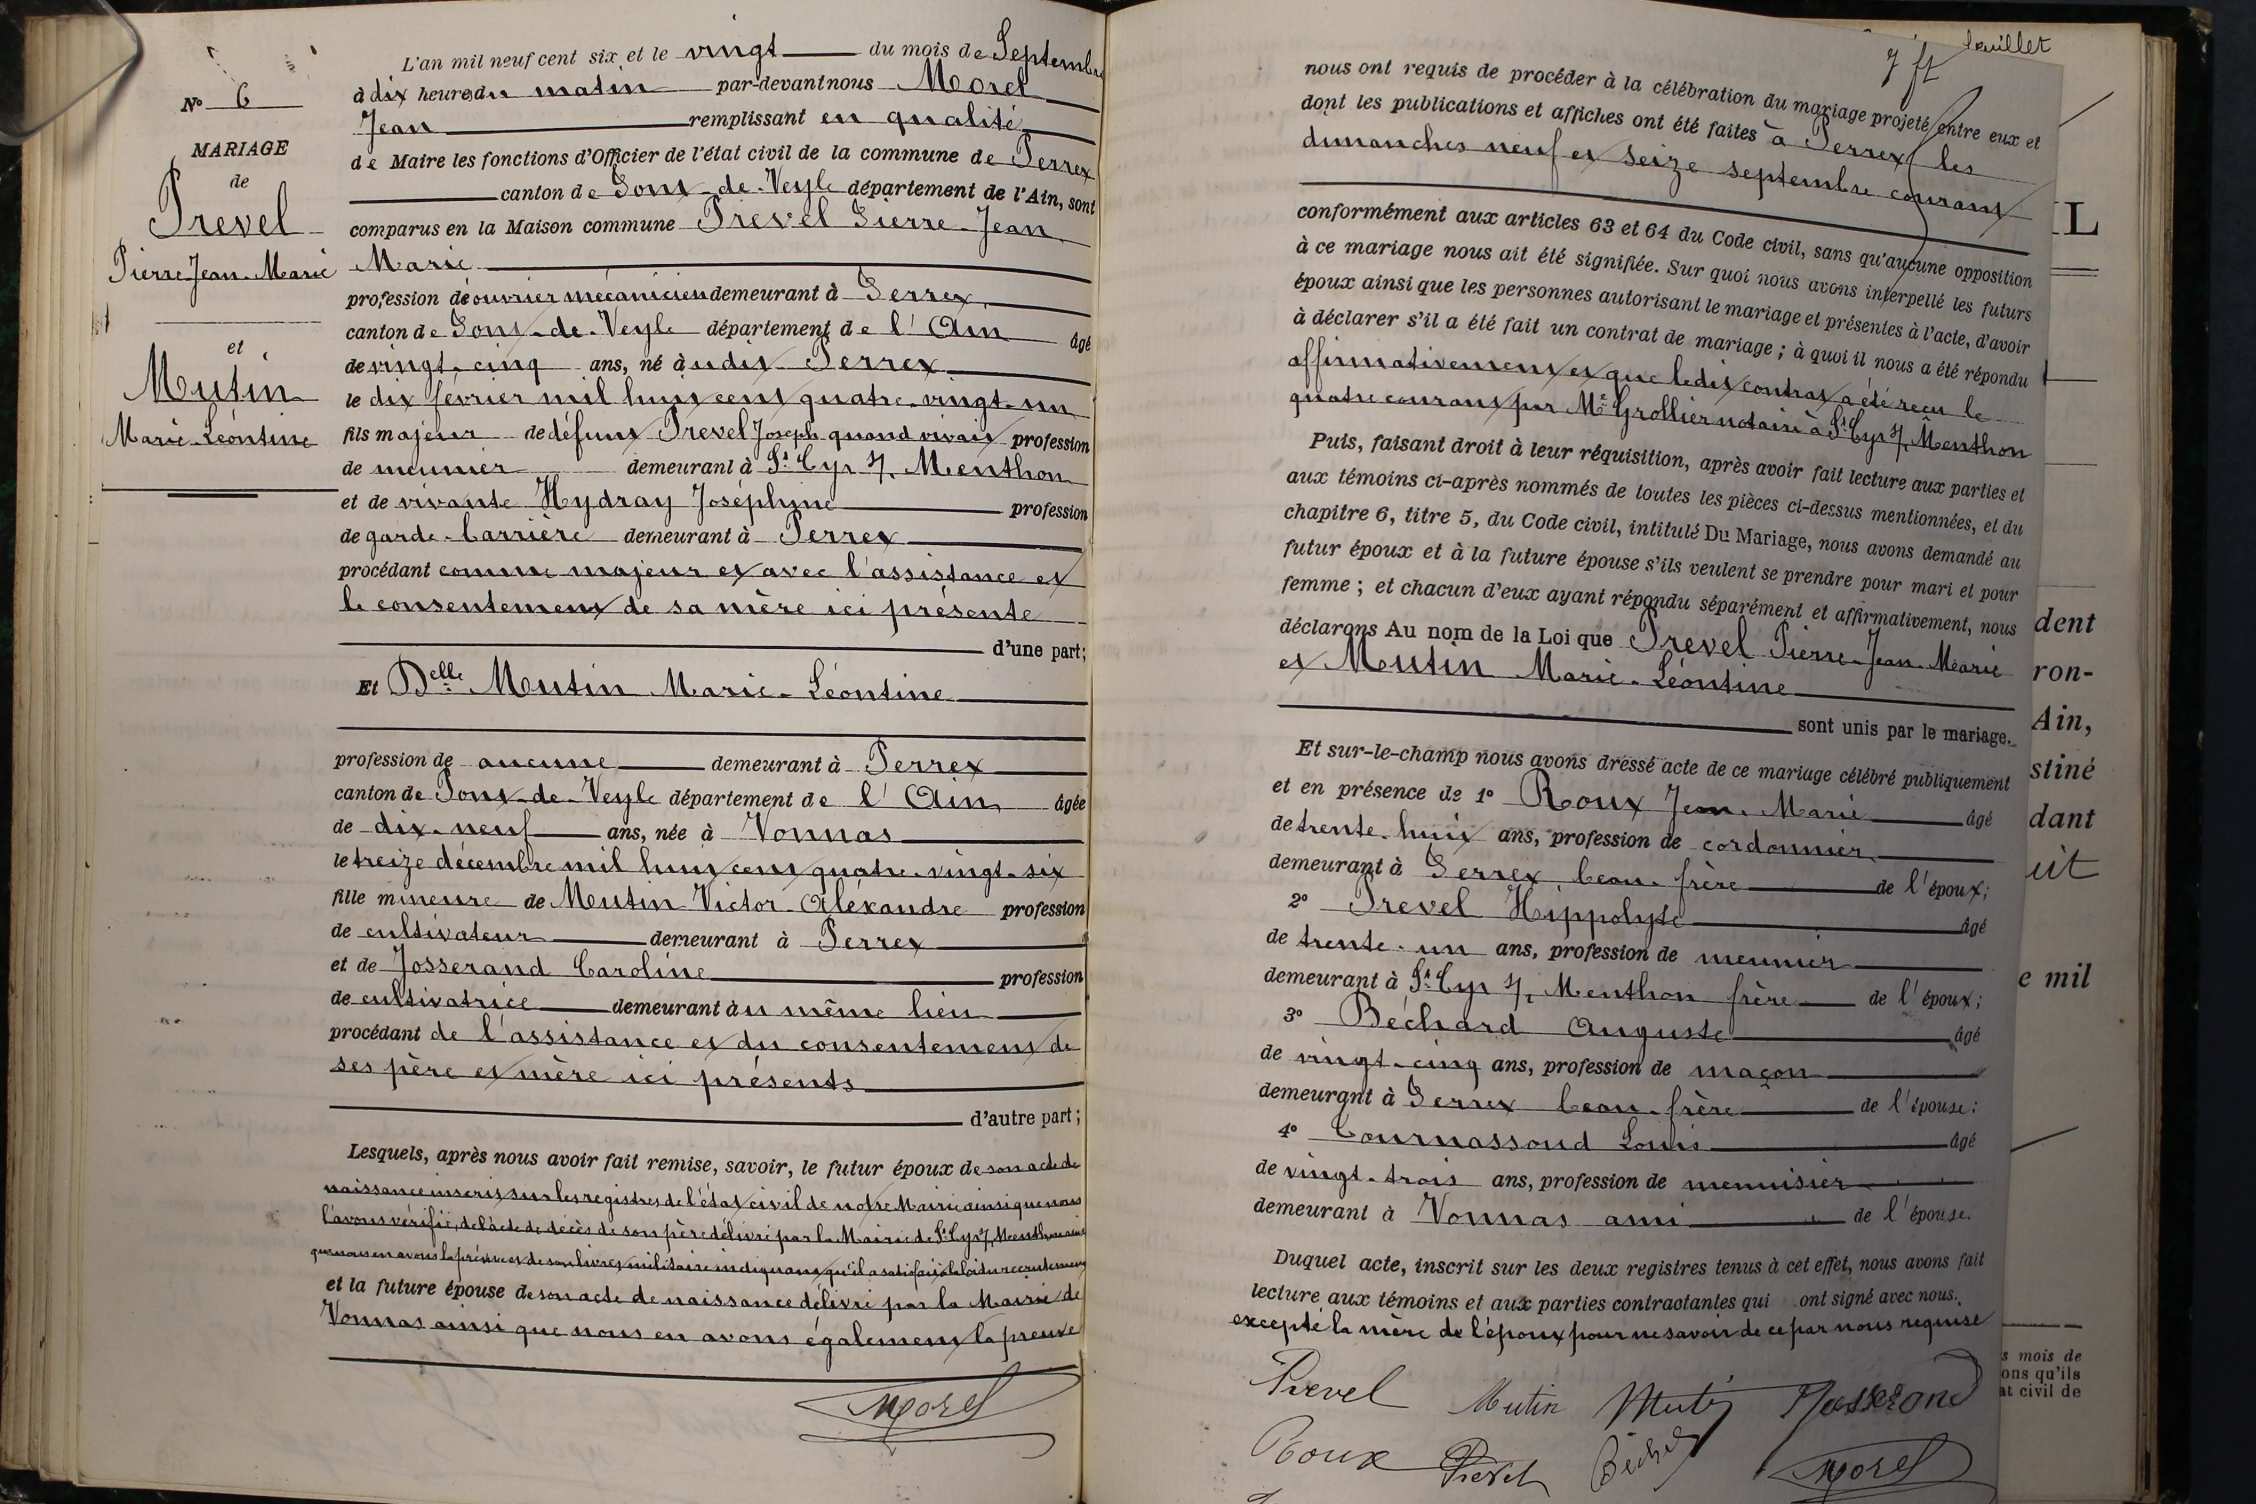 N° 6
MARIAGE
de
Prevel
Pierre-Jean-Marie
et
Mutin
Marie-Léontine
L'an mil neuf cent six et le vingt du mois de Septembre
à dix heures du matin par-devant nous Morel
Jean remplissant en qualité
de Maire les fonctions d'Officier de l'état civil de la commune de Perrex
canton de Pont-de-Veyle département de l'Ain, sont
comparus en la Maison commune Prevel Pierre-Jean
Marie
profession de ouvrier mécanicien demeurant à Perrex
canton de Pont-de-Veyle département de l'Ain âgé
de vingt-cinq ans, né àudit Perrex
le dix février mil huit cent quatre-vingt-un
fils majeur de défunt Prevel Joseph quand vivait profession
de meunier demeurant à St Cyr s/ Menthon
et de vivante Hydray Joséphine profession
de garde-barrière demeurant à Perrex
procédant comme majeur et avec l'assistance et
le consentement de sa mère ici présente
d'une part;
Et Delle Mutin Marie-Léontine
profession de aucune demeurant à Perrex
canton de Pont-de-Veyle département de l'Ain âgée
de dix-neuf ans, née à Vonnas
le treize décembre mil huit cent quatre-vingt-six
fille mineure de Mutin Victor-Aléxandre profession
de cultivateur demeurant à Perrex
et de Josserand Caroline profession
de cultivatrice demeurant àu même lieu
procédant de l'assistance et du consentement de
ses père et mère ici présents
d'autre part;
Lesquels, après nous avoir fait remise, savoir, le futur époux de son acte de
naissance inscrit sur les registres de l'état civil de notre Mairie ainsi que nous
l'avons vérifié, de l'acte de décès de son père délivré par la Mairie de St Cyr s/ Menthon ainsi
que nous en avons la preuve et de son livret militaire indiquant qu'il a satisfait à la loi du recrutement
et la future épouse de son acte de naissance délivré par la Mairie de
Vonnas ainsi que nous en avons également la preuve
Morel
7 ft
feuillet
nous ont requis de procéder à la célébration du mariage projeté entre eux et
dont les publications et affiches ont été faites à Perrex les
dimanches neuf et seize septembre courant
conformément aux articles 63 et 64 du Code civil, sans qu'aucune opposition
à ce mariage nous ait été signifiée. Sur quoi nous avons interpellé les futurs
époux ainsi que les personnes autorisant le mariage et présentes à l'acte, d'avoir
à déclarer s'il a été fait un contrat de mariage; à quoi il nous a été répondu
affirmativement et que ledit contrat a été reçu le
quatre courant par Me Grollier notaire à St Cyr s/ Menthon
Puis, faisant droit à leur réquisition, après avoir fait lecture aux parties et
aux témoins ci-après nommés de toutes les pièces ci-dessus mentionnées, et du
chapitre 6, titre 5, du Code civil, intitulé Du Mariage, nous avons demandé au
futur époux et à la future épouse s'ils veulent se prendre pour mari et pour
femme; et chacun d'eux ayant répondu séparément et affirmativement, nous
déclarons Au nom de la Loi que Prevel Pierre-Jean-Marie
et Mutin Marie-Léontine
sont unis par le mariage.
Et sur-le-champ nous avons dressé acte de ce mariage célébré publiquement
et en présence de 1° Roux Jean-Marie âgé
de trente-huit ans, profession de cordonnier
demeurant à Perrex beau-frère de l'époux;
2° Prevel Hippolyte âgé
de trente-un ans, profession de meunier
demeurant à St Cyr s/ Menthon frère de l'époux;
3° Béchard Auguste âgé
de vingt-cinq ans, profession de maçon
demeurant à Perrex beau-frère de l'épouse;
4° Tournassoud Louis âgé
de vingt-trois ans, profession de menuisier
demeurant à Vonnas ami de l'épouse.
Duquel acte, inscrit sur les deux registres tenus à cet effet, nous avons fait
lecture aux témoins et aux parties contractantes qui ont signé avec nous.
excepté la mère de l'époux pour ne savoir de ce par nous requise
Prevel Mutin Mutin Josserand
Roux Prevel Béchard Morel
IL
dent
ron-
Ain,
stiné
dant
uit
e mil
s mois de
ons qu'ils
at civil de